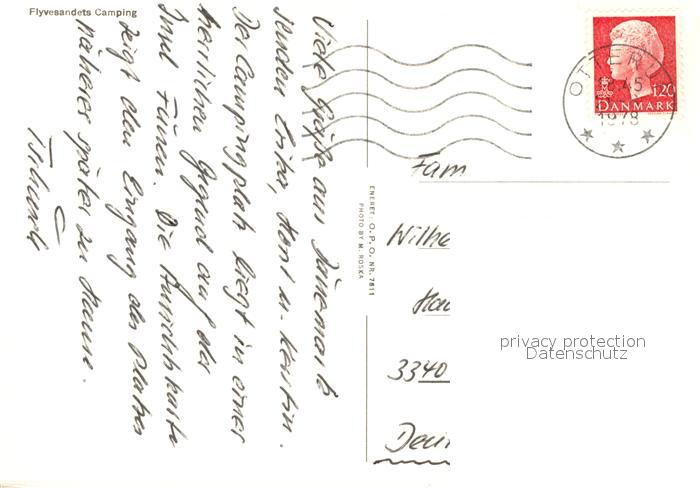 Flyvesandets Camping
Viele Grüße aus Dänemark
senden Erika, Horst u. Kerstin.
Der Campingplatz liegt in einer
herrlichen Gegend auf der
Insel Fünen. Die Ansichtskarte
zeigt den Eingang des Platzes
näheres später zu Hause.
Tschüß
ENERET: O. P. O. NR. 7811
PHOTO BY M. ROSKA
OTTERU
1978
120
DANMARK
Fam
Wilhe
Hau
3340
privacy protection
Datenschutz